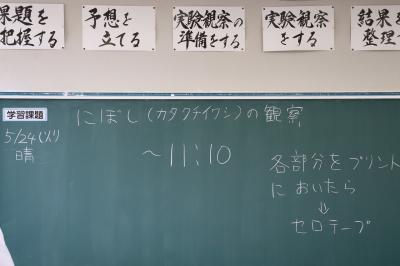 課題を
把握する
予想を
立てる
実験観察の
準備をする
実験観察
をする
結果を
整理す
学習課題
にぼし(カタクチイワシ)の観察
5/24(火)
晴
～11:10
各部分をプリント
においたら
↓
セロテープ